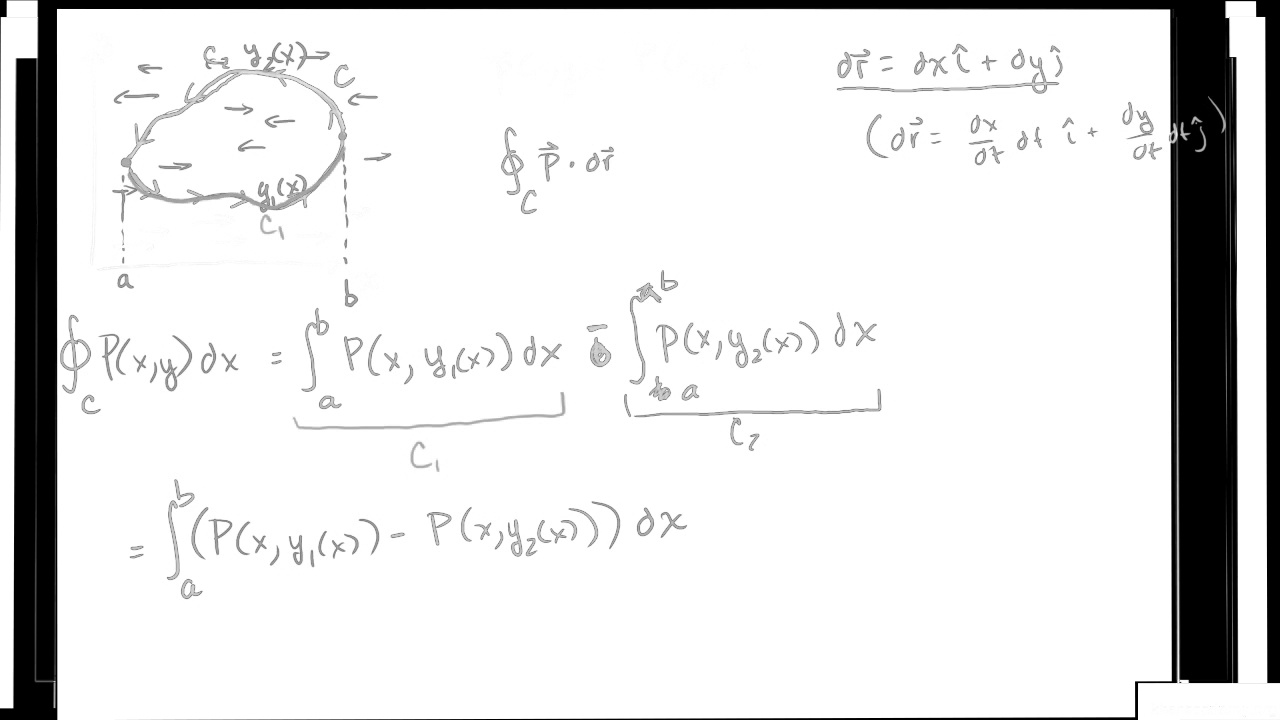 C₂ y₂(x)
C
y₁(x)
C₁
a
b
dr⃗ = dx î + dy ĵ
(dr⃗ = dx/dt dt î + dy/dt dt ĵ)
∮_C P⃗ · dr⃗
∮_C P(x,y) dx = ∫_a^b P(x, y₁(x)) dx - ∫_a^b P(x, y₂(x)) dx
C₁ C₂
= ∫_a^b (P(x, y₁(x)) - P(x, y₂(x))) dx